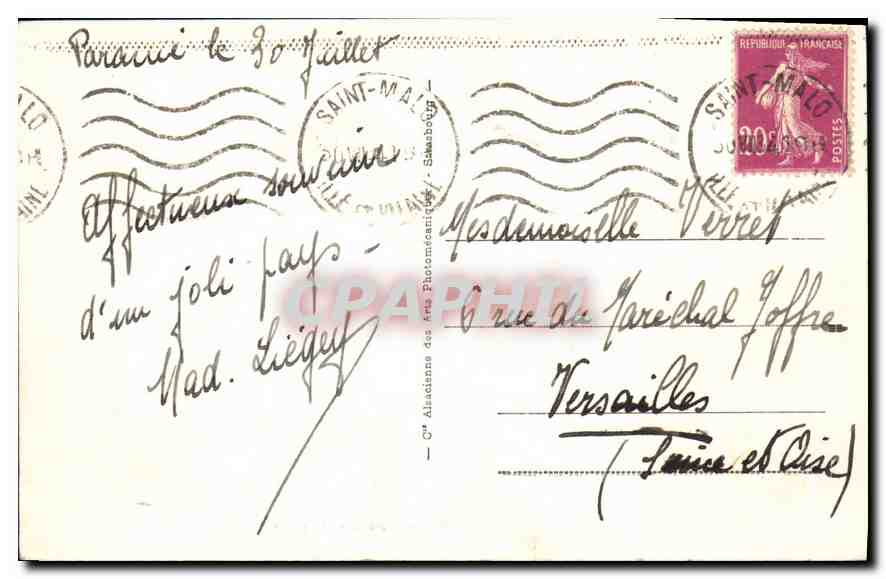 Paramé le 30 Juillet
Affectueux souvenir
d'un joli pays -
Mad. Liégey
Cie Alsacienne des Arts Photomécaniques - Strasbourg
REPUBLIQUE FRANÇAISE
20c
POSTES
SAINT-MALO
ILLE ET VILAINE
SAINT-MALO
Mesdemoiselle Verret
6 rue du Maréchal Joffre
Versailles
(Seine et Oise)
CPAPHIL